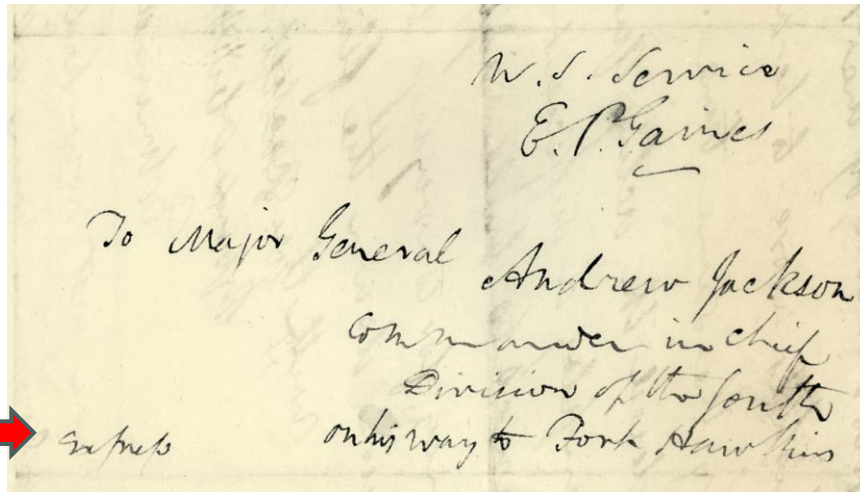 U. S. Service
E. P. Gaines
To Major General
Andrew Jackson
Commander in chief
Division of the South
on his way to Fort Hawkins
Express